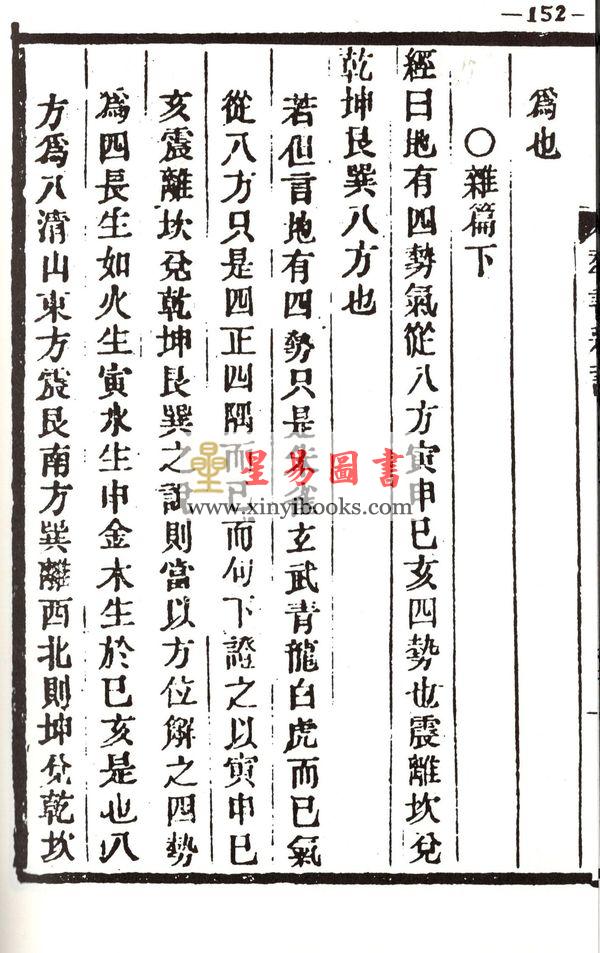 —152—
爲也
○雜篇下
經曰地有四勢氣從八方寅申巳亥四勢也震離坎兌
乾坤艮巽八方也
若但言地有四勢只是朱雀玄武青龍白虎而已氣
從八方只是四正四隅而已而何下證之以寅申巳
亥震離坎兌乾坤艮巽之説則當以方位解之四勢
爲四長生如火生寅水生申金木生於巳亥是也八
方爲八清山東方震艮南方巽離西北則坤兌乾坎
星易圖書
www.xinyibooks.com